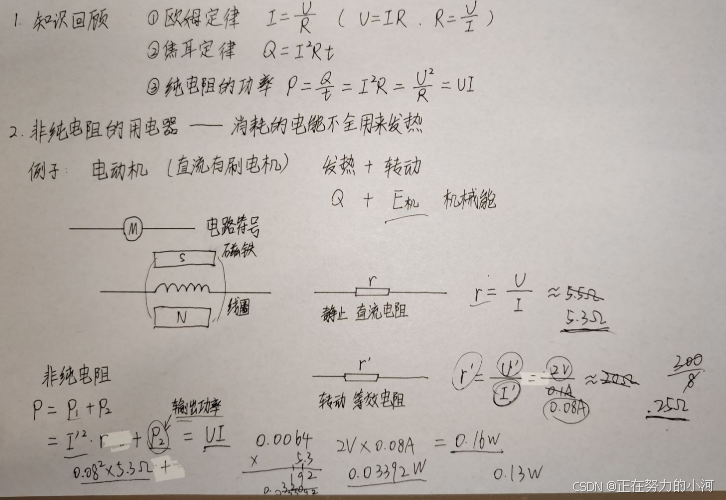 1. 知识回顾 ①欧姆定律 I=U/R ( U=IR . R=U/I )
②焦耳定律 Q=I²Rt
③纯电阻的功率 P=Q/t=I²R=U²/R=UI
2. 非纯电阻的用电器 —— 消耗的电能不全用来发热
例子: 电动机 (直流有刷电机) 发热 + 转动
Q + E机 机械能
M 电路符号
S 磁铁
线圈
N
r
静止 直流电阻
r = U/I ≈ 5.5Ω
5.3Ω
r'
转动 等效电阻
r' = U'/I' = 2V/0.1A ≈ 20Ω
0.08A
200/8
25Ω
非纯电阻
P = P₁ + P₂ 输出功率
= I'²·r + P₂ = UI
0.08²×5.3Ω +
0.0064
× 5.3
192
2V×0.08A = 0.16W
0.03392W
0.13W
CSDN @正在努力的小河